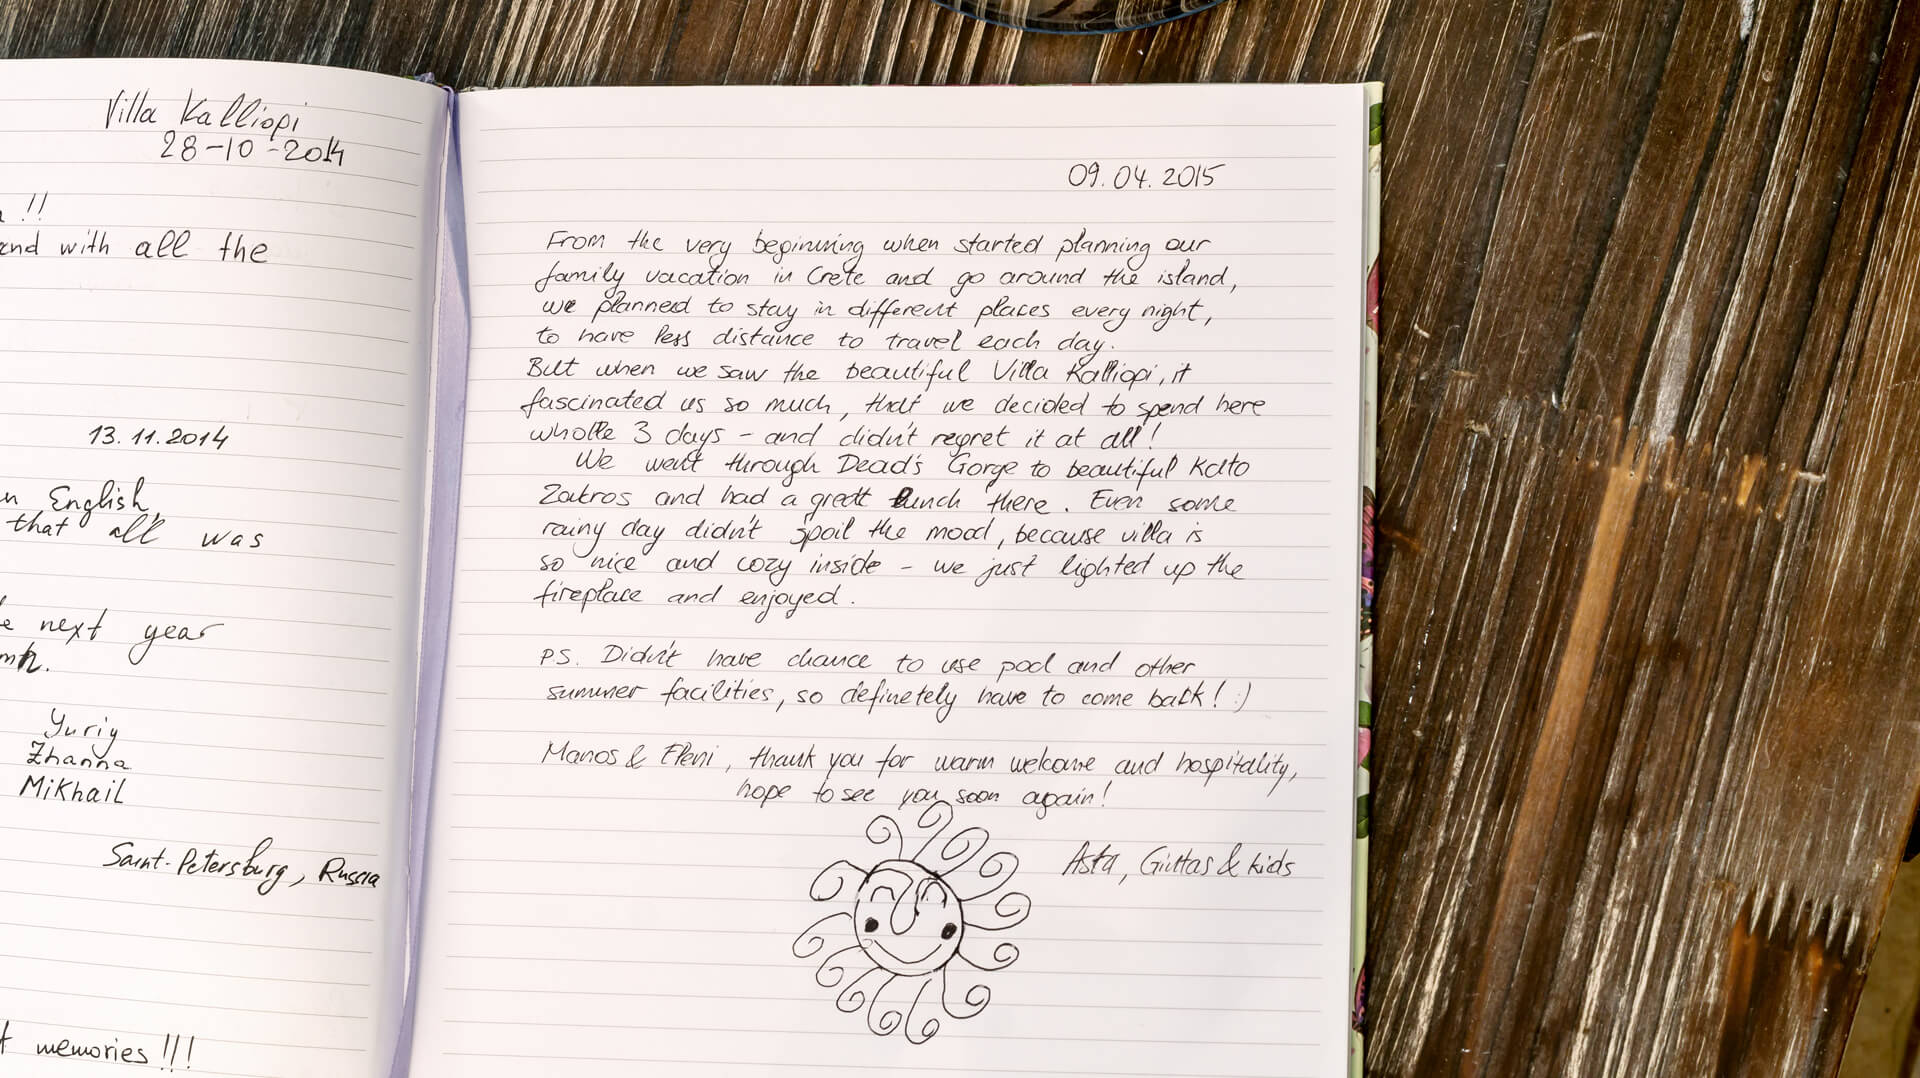 Villa Kalliopi
28-10-2014
!!
and with all the
13.11.2014
English,
that all was
next year
Yuriy
Zhanna
Mikhail
Saint-Petersburg, Russia
memories !!!
09.04.2015
From the very beginning when started planning our
family vacation in Crete and go around the island,
we planned to stay in different places every night,
to have less distance to travel each day.
But when we saw the beautiful Villa Kalliopi, it
fascinated us so much, that we decided to spend here
wholle 3 days - and didn't regret it at all!
We went through Dead's Gorge to beautiful Kato
Zakros and had a great lunch there. Even some
rainy day didn't spoil the mood, because villa is
so nice and cozy inside - we just lighted up the
fireplace and enjoyed.
PS. Didn't have chance to use pool and other
summer facilities, so definetely have to come back! :)
Manos & Eleni, thank you for warm welcome and hospitality,
hope to see you soon again!
Asta, Gintas & kids